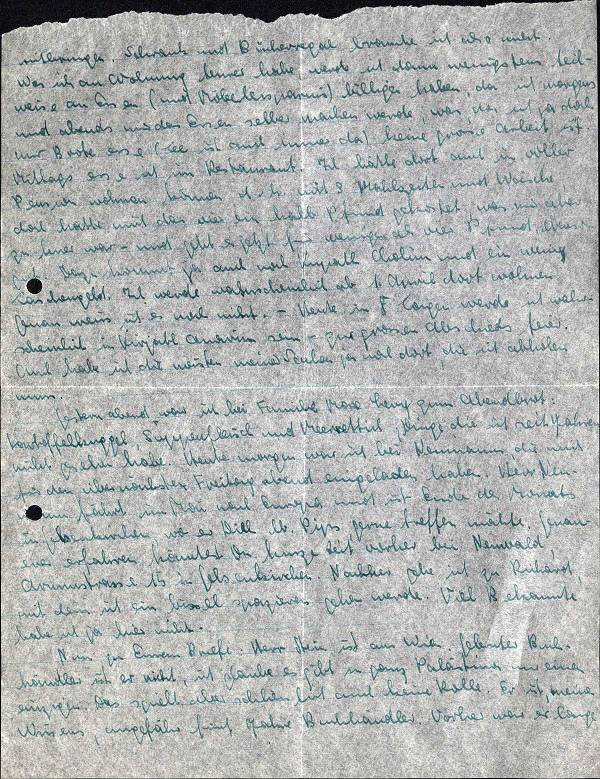 mitbringen. Schrank und Bücherregal brauche ich also nicht.
Was ich an Wohnung teurer habe werde ich dann wenigstens teil-
weise an Essen (und Möbelersparnis) billiger haben, da ich morgens
und abends mir das Essen selber machen werde, was, da ich ja doch
nur Brote esse (Tee ist auch immer da) keine grosse Arbeit ist
Mittags esse ich im Restaurant. Ich hätte dort auch in voller
Pension wohnen können d.h. mit 3 Mahlzeiten und Wäsche
doch hätte mich das vier ein halb Pfund gekostet, was mir aber
zu teuer war - und geht es jetzt für weniger als vier Pfund
dazu kommt ja auch noch und ein wenig
Taschengeld. Ich werde wahrscheinlich ab 1 April dort wohnen
genau weiss ich es noch nicht. - Heute in 8 Tagen werde ich wahr-
scheinlich in Kirjath Anavim sein - zur grossen Abschieds feier.
Auch habe ich die meisten meiner Sachen ja noch dort, die ich abholen
muss.
Gestern abend war ich bei Familie zum Abendbrot.
Kartoffelkuggel, Suppenfleisch und Meerrettich, Dinge die ich seit Jahren
nicht gesehen habe. Heute morgen war ich bei Neumanns die mich
für den übernächsten Freitag abend eingeladen haben. Herr Neu-
mann fährt im Mai nach Europa und ist Ende des Monats
in Gelsenkirchen, wo er Dich, lb. gerne treffen möchte. Genau-
eres erfahren könntest Du kurze Zeit vorher bei
15 in Gelsenkirchen. Nachher gehe ich zu
mit dem ich ein bissel spazieren gehen werde. Viel Bekannte
habe ich ja hier nicht.
Nun zu Eurem Briefe. Herr Stein ist aus Wien. Gelernter Buch-
händler ist er nicht, ich glaube es gibt in ganz Palästina nur einen
einzigen. Das spielt aber schliesslich auch keine Rolle. Er ist, meines
Wissens, ungefähr fünf Jahre Buchhändler. Vorher war er lange